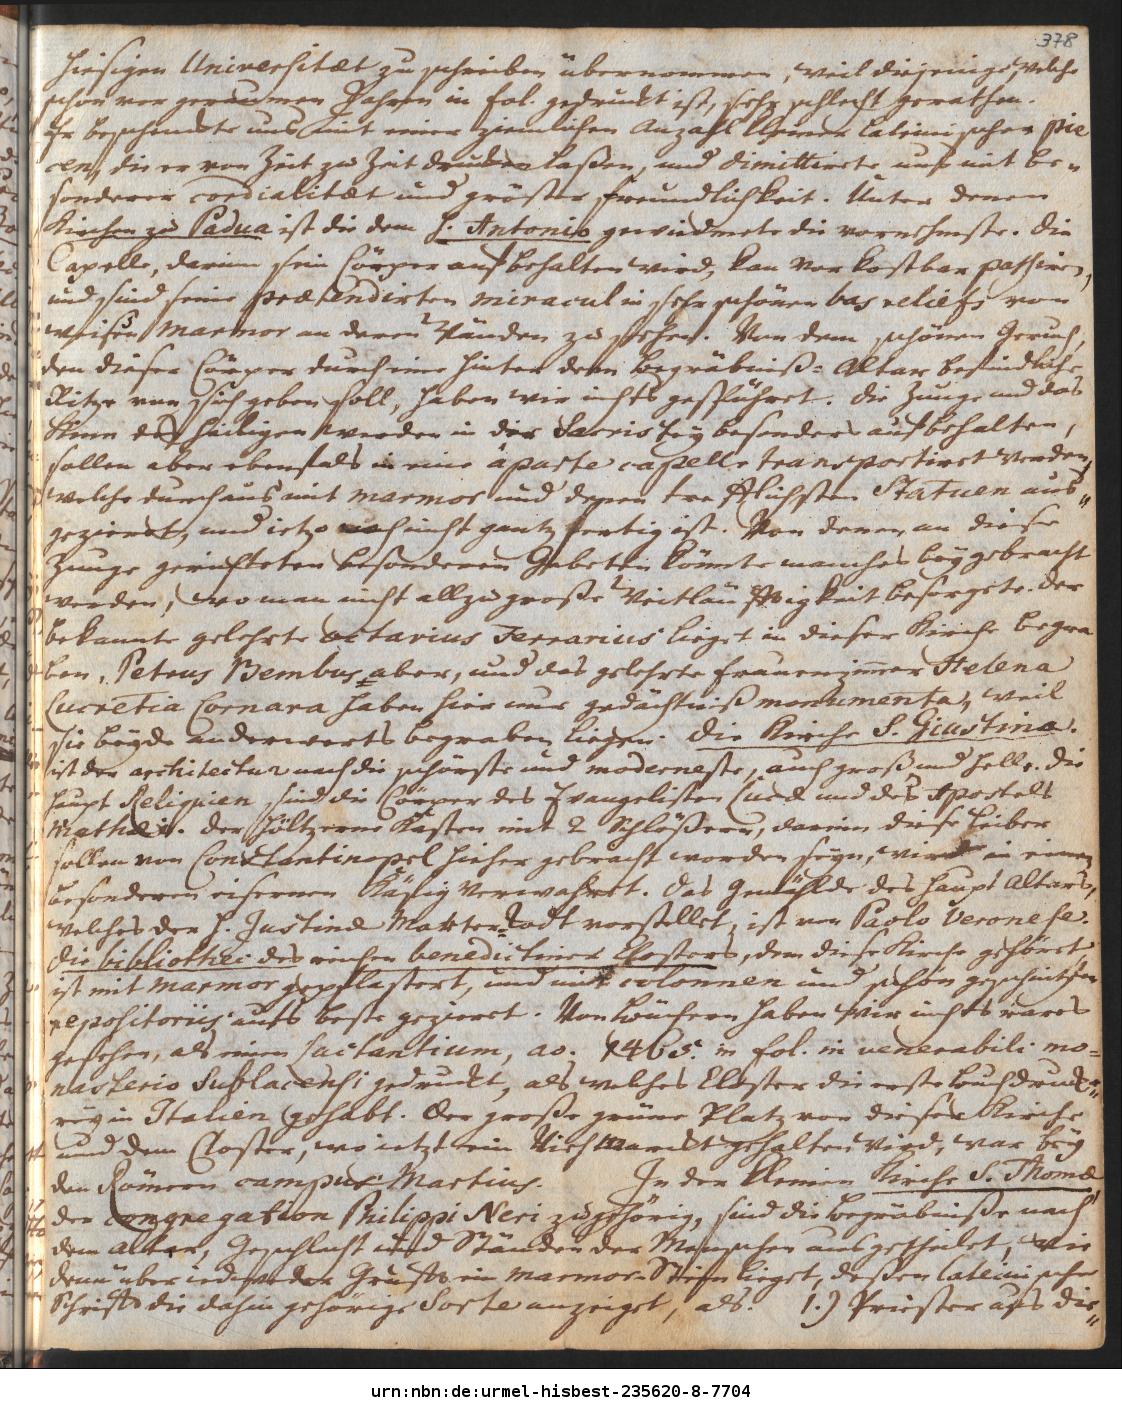 378
hiesigen Universitæt zu schreiben übernommen, weil diejenige, welche
schon vor geraumen Jahren in fol. gedruckt ist, sehr schlecht gerathen.
Er beschenckte uns mit einer ziemlichen Anzahl kleiner Lateinischer Pie
cen, die er von Zeit zu Zeit drucken laßen, und dimittirete uns mit be„
sonderer cordialitæt und gröster freundlichkeit. Unter denen
Kirchen zu Padua ist die dem S. Antonio gewiedmete die vornehmste. Die
Capelle, darinn sein Cörper aufbehalten wird, kan vor kostbar passiren,
und sind seine prætendirten miracul in sehr schönen bas reliefs von
weißen Marmor an deren Wänden zu sehen. Von dem schönen Geruch,
den dieser Cörper durch eine hinter dem Begräbniß-Altar befindliche
Ritze von sich geben soll, haben wir nichts gespühret. Die Zunge und das
Kinn des Heiligen werden in der Sacristey besonders aufbehalten,
sollen aber ebenfals in eine aparte capelle transportiret werden,
welche durchaus mit marmor und denen trefflichsten Statuen aus„
gezieret, und ietzo noch nicht gantz fertig ist. Von denen an diese
Zunge gerichteten besonderen Gebeten könte manches beygebracht
werden, wo man nicht allzu große Weitläuffigkeit besorgete. Der
bekannte gelehrte octavius Ferrarius lieget in dieser Kirche begra
ben, Petrus Bembus aber, und das gelehrte Frauenzimer Helena
Lucretia Cornara haben hier nur gedächtniß monumenta, weil
sie beyde anderwerts begraben liegen. Die Kirche S. Giustina.
ist der architectur nach die schönste und moderneste, auch groß und helle. Die
Haupt Reliquien sind die Cörper des Evangelisten Lucæ und des Apostels
Mathæi. Der höltzerne Kasten mit 2 Schlößern, darinn diese Leiber
sollen von Constantinopel hieher gebracht worden seyn, wird in einem
besonderen eisernen Käfig verwahret. Das Gemählde des Haupt Altars,
welches der S. Justinæ Marter-Todt vorstellet, ist von Paolo Veronese.
Die bibliothec des reichen benedictiner Closters, dem diese Kirche gehöret
ist mit marmor gepflastert, und mit colonnen und schön geschnitzten
repositoriis aufs beste gezieret. Von Büchern haben wir nichts rares
gesehen, als einen Lactantium, ao. 1465. in fol. in venerabili mo-
nasterio Sublacensi gedruckt, als welches Closter die erste Buchdrucke„
rey in Italien gehabt. Der große grüne Platz vor dieser Kirche
und dem Closter, wo ietzt ein Viehmarckt gehalten wird, war bey
den Römern campus Martius. In der kleinen Kirche S. Thomæ
der congregation Philippi Neri zugehörig, sind die Begräbniße nach
dem alter, Geschlecht und Ständen der Menschen ausgetheilet, wie
denn über iedweder Grufft ein marmor-Stein lieget, deßen lateinische
Schrifft die dahin gehörige Sorte anzeiget, als. 1.) Priester aus die„
urn:nbn:de:urmel-hisbest-235620-8-7704